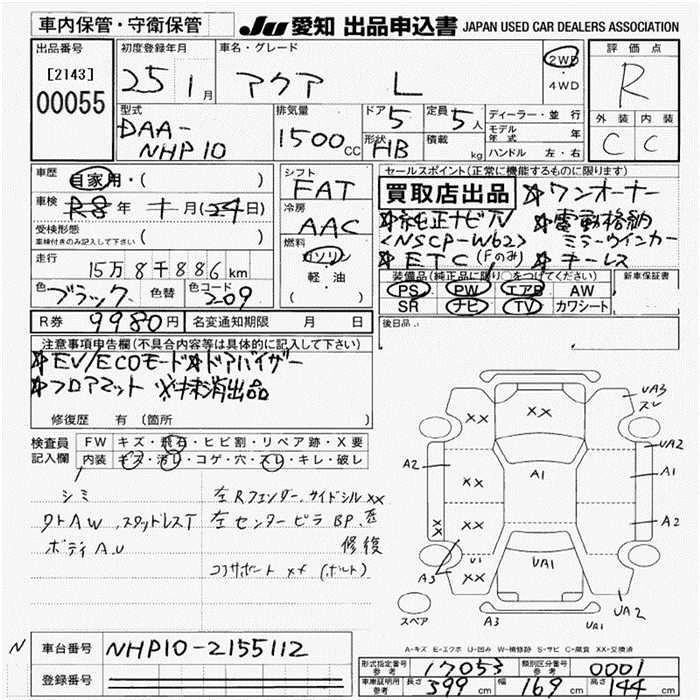 車内保管・守衛保管
JU 愛知 出品申込書 JAPAN USED CAR DEALERS ASSOCIATION
出品番号
[2143]
00055
初度登録年月
25 1月
車名・グレード
アクア L
2WD
・4WD
評価点
R
外装 内装
C C
型式
DAA-
NHP10
排気量
1500 CC
ドア 5
定員 5人
形状 HB
積載 kg
ディーラー・並行
モデル年式 年
ハンドル 左・右
車歴
自家用・( )
車検
R8年 十月(24日)
受検形態
車検付きのみ記入して下さい ( )
走行
15万8千886km
色 ブラック
色替
色コード 209
シフト
FAT
冷房
AAC
燃料
ガソリン
軽・油
( )
セールスポイント(正常に機能するものに限ります)
買取店出品 ワンオーナー
純正ナビTV 電動格納
<NSCP-W62> ミラーウインカー
ETC(Fのみ) キーレス
装備品(純正品に限り○をつけてください)
PS PW エアB AW
SR ナビ TV カワシート
新車保証書
後日品
R券 9980円 名変通知期限 月 日
注意事項申告欄(不具合内容等は具体的に記入して下さい)
EV/ECOモード ドアバイザー
フロアマット ※抹消出品
修復歴 有(箇所
検査員
記入欄
FW キズ・飛石・ヒビ割・リペア跡・X要
内装 キズ・汚れ・コゲ・穴・スレ・キレ・破レ
シミ
ワトAW、スタッドレスT
ボディA.U
左Rフェンダー、サイドシルxx
左センターピラBP、歪
修復
コアサポートxx(ボルト)
XX XX UA3
スレ
UA2
A2 A1
XX
XX XX A2
U1 UA1
A3 XX
UA2
スペア A3 UA1
A-キズ E-エクボ U-凹み W-補修跡 S-サビ C-腐食 XX-交換済
N
車台番号 NHP10-2155112
登録番号
形式指定番号
参考 17053
類別区分番号
参考 0001
車庫証明用
参考 長さ 399cm 幅 169cm 高さ 144cm